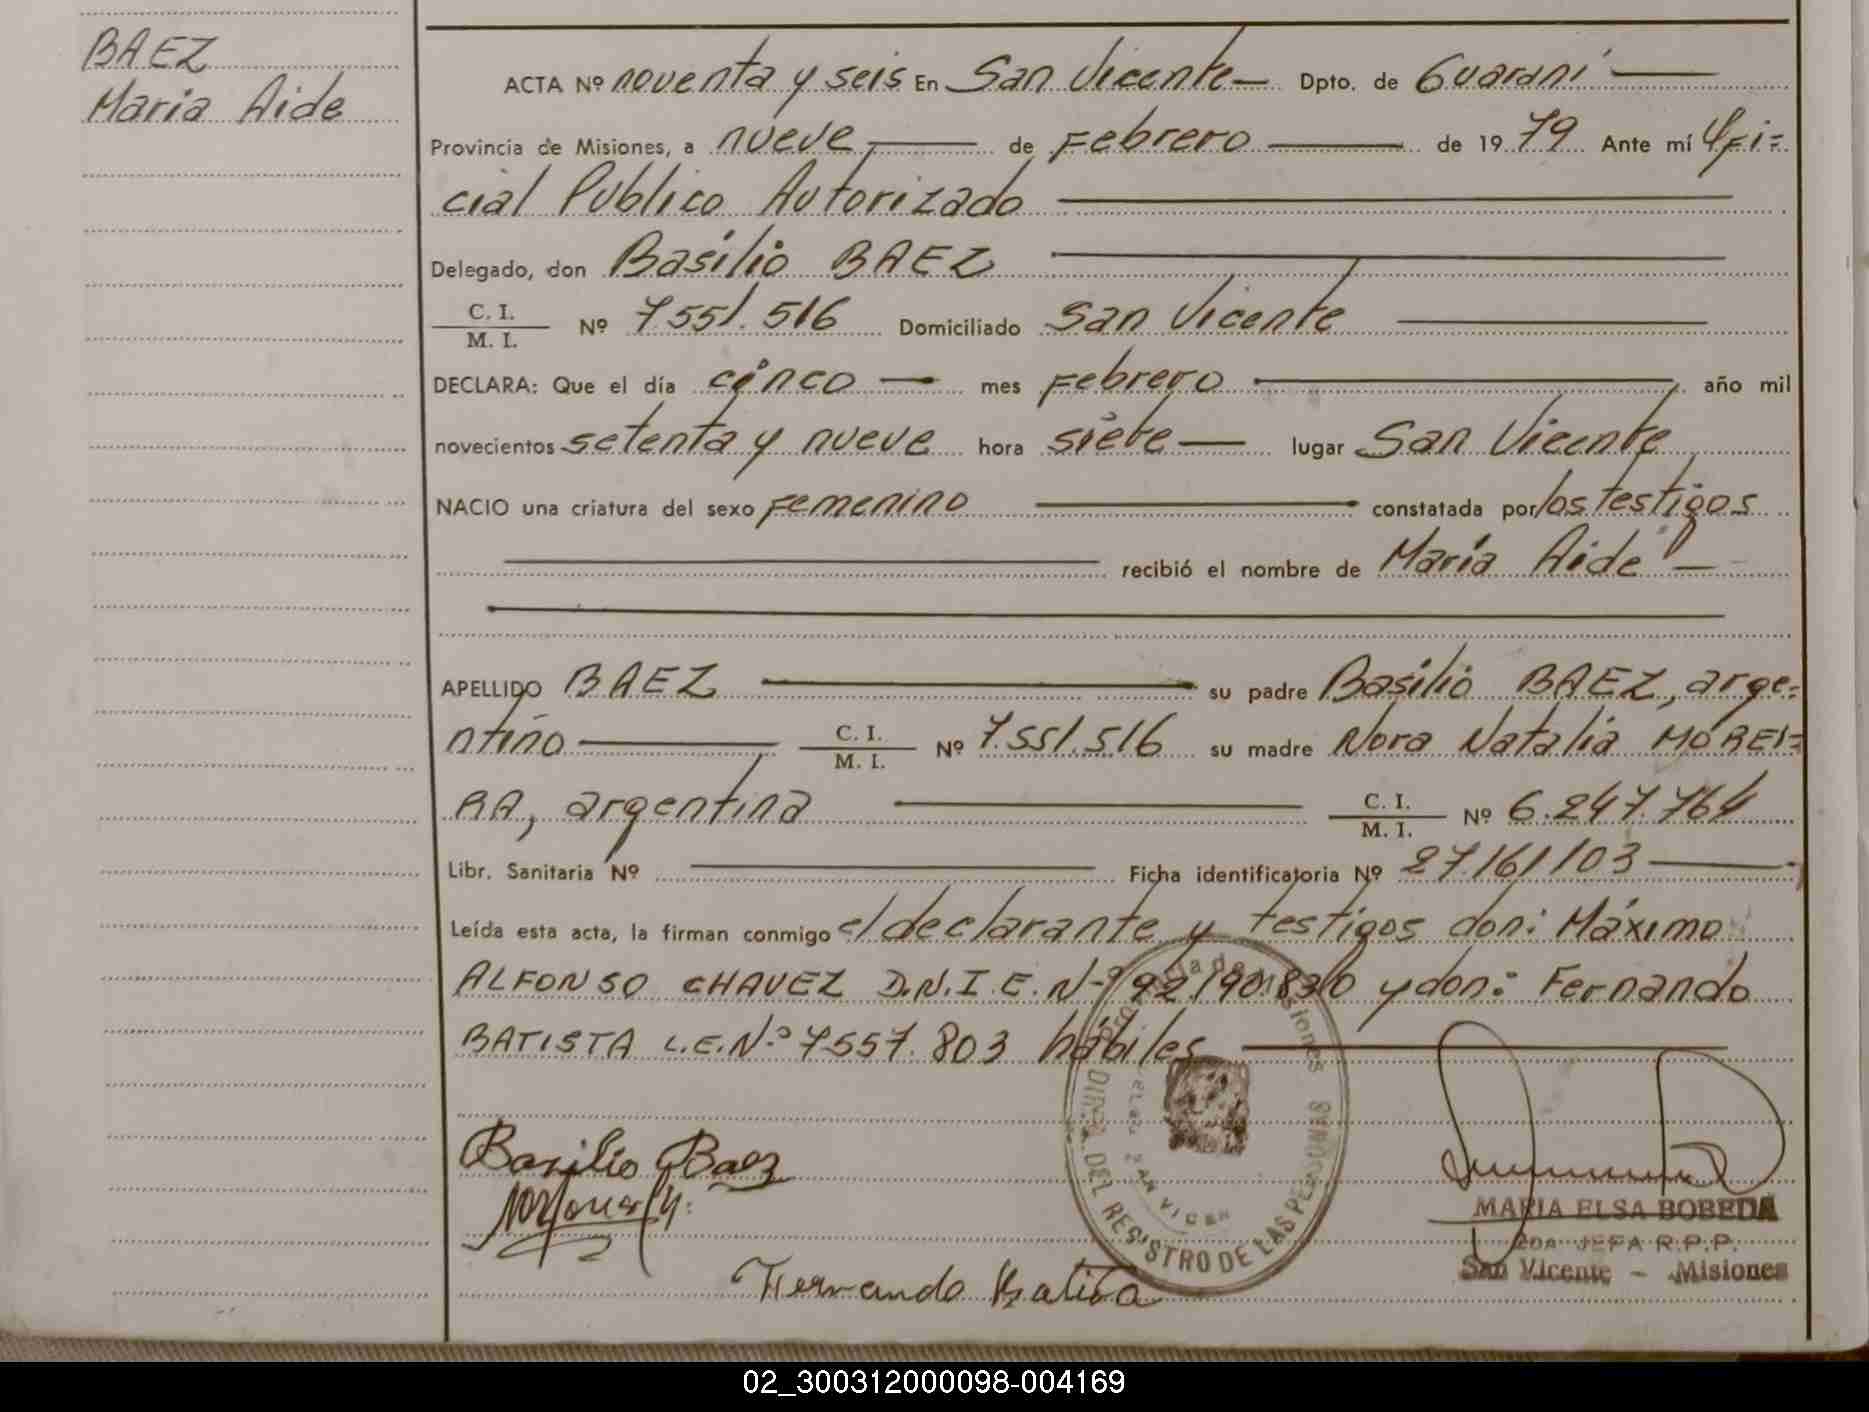 BAEZ
Maria Aide
ACTA Nº noventa y seis En San Vicente — Dpto. de Guaraní —
Provincia de Misiones, a nueve — de Febrero — de 1979 Ante mí Ofi=
cial Publico Autorizado —
Delegado, don Basilio BAEZ —
C. I.
M. I. Nº 7551.516 Domiciliado San Vicente —
DECLARA: Que el día cinco — mes Febrero — año mil
novecientos setenta y nueve hora siete — lugar San Vicente
NACIO una criatura del sexo Femenino — constatada por los testigos
— recibió el nombre de María Aide —
APELLIDO BAEZ — su padre Basilio BAEZ, arge=
ntino — C. I.
M. I. Nº 7.551.516 su madre Nora Natalia MOREI=
RA, argentina — C. I.
M. I. Nº 6.247.764
Libr. Sanitaria Nº — Ficha identificatoria Nº 27161/03 —
Leída esta acta, la firman conmigo el declarante y testigos don: Máximo
ALFONSO CHAVEZ D.N.I.E.Nº 92190.830 y don: Fernando
BATISTA L.E.Nº 7557.803 hábiles —
Provincia de Misiones
DIR. DEL REGISTRO DE LAS PERSONAS
SAN VICEN
Basilio Baez
Fernando Batista
MARIA ELSA BOBEDA
2DA JEFA R.P.P.
San Vicente - Misiones
02_300312000098-004169